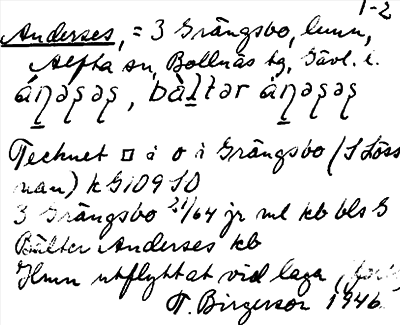 1-2
Anderses, = 3 Grängsbo, hmn,
Alfta sn, Bollnäs tg, Gävl. l.
áṉəʂəʂ, bàḻtər áṉəʂəʂ
Tecknet □ å o i Grängsbo (S Löss
nan) k G109 SO
3 Grängsbo 21/64 jr ml kb bls G
Bälter Anderses kb
Hmn utflyttat vid laga
T. Birgerson 1946.